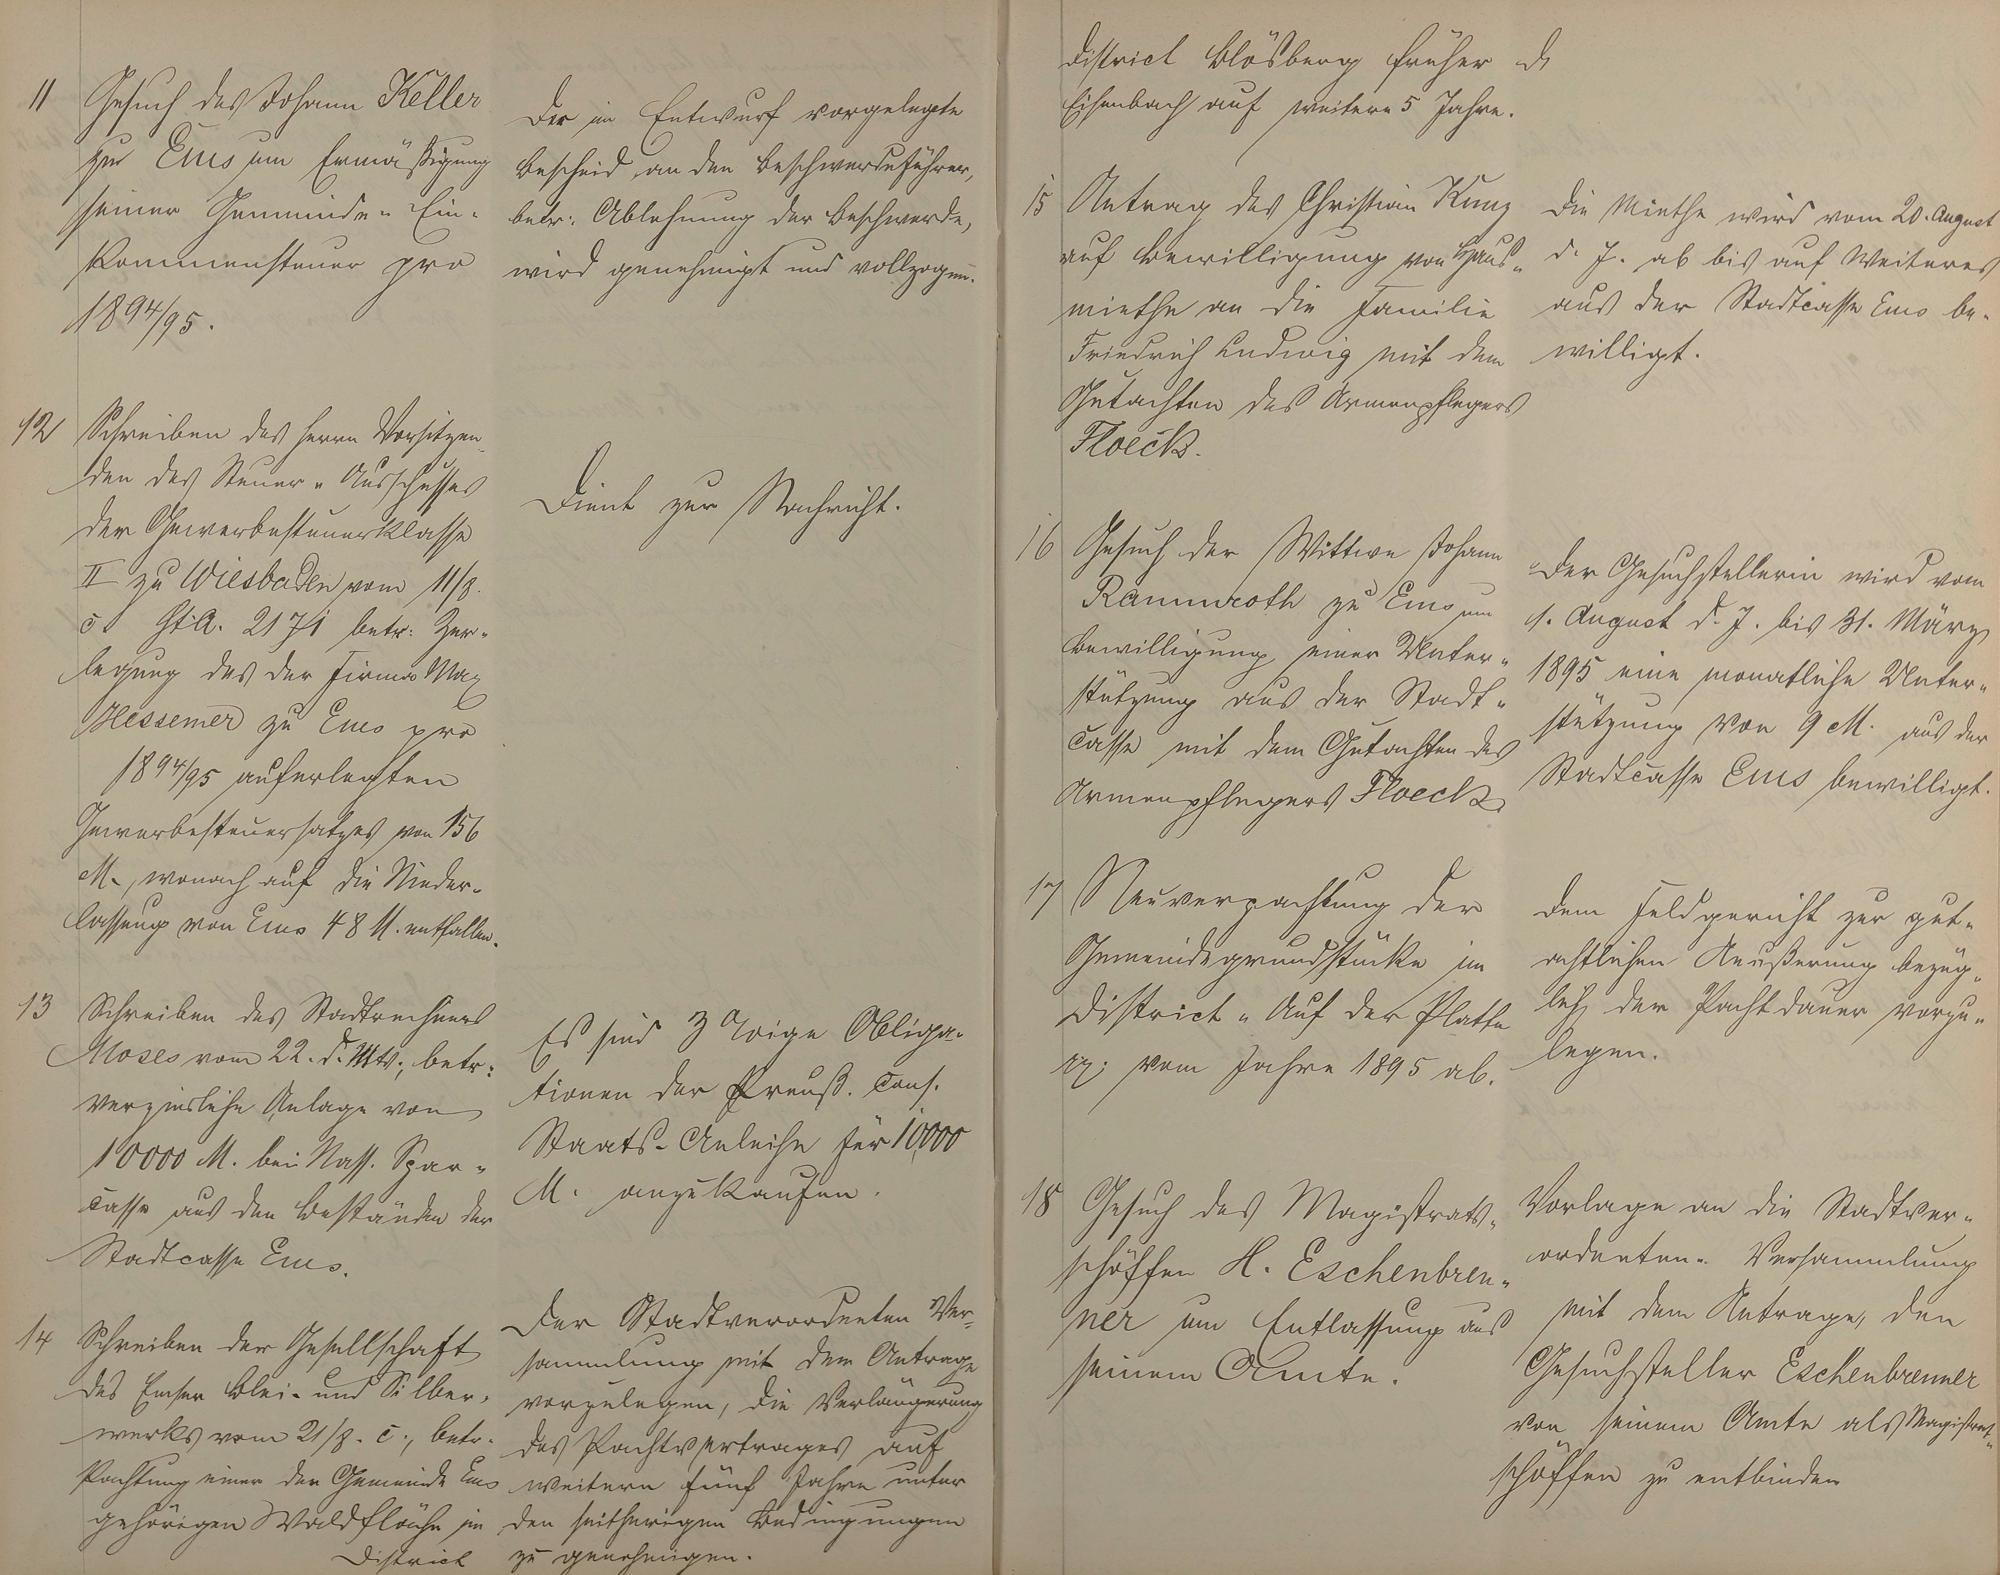 11
Gesuch des Johann Keller
zu Ems um Ermäßigung
seiner Gemeinde-Ein-
kommensteuer pro
1894/95.
Der im Entwurf vorgelegte
Bescheid an den Beschwerdeführer,
betr: Ablehnung der Beschwerde,
wird genehmigt und vollzogen.
12
Schreiben des Herrn Vorsitzen-
den des Steuer-Ausschusses
der Gewerbesteuerklasse
II zu Wiesbaden vom 11/8.
c. St.A. 2171 betr: Zer-
legung des der Firma Max
Hessemer zu Ems pro
1894/95 auferlegten
Gewerbesteuersatzes von 156
M., wonach auf die Nieder-
lassung von Ems 48 M. entfallen.
Dient zur Nachricht.
13
Schreiben des Stadtrechners
Moses vom 22. d. Mts., betr:
verzinsliche Anlage von
10000 M. bei Nass. Spar-
casse aus den Beständen der
Stadtcasse Ems.
Es sind 3%ige Obliga-
tionen der Preuß. Cons.
Staats-Anleihe für 10,000
M. anzukaufen.
14
Schreiben der Gesellschaft
des Emser Blei- und Silber-
werks vom 21/8. c., betr.
Pachtung einer der Gemeinde Ems
gehörigen Waldfläche im
District
Der Stadtverordneten Ver-
sammlung mit dem Antrage
vorzulegen, die Verlängerung
des Pachtvertrages auf
weitere fünf Jahre unter
den seitherigen Bedingungen
zu genehmigen.
District Blösberg früher
Eisenbach auf weitere 5 Jahre.
15
Antrag des Christian Kunz
auf Bewilligung von Haus-
miethe an die Familie
Friedrich Ludwig mit dem
Gutachten des Armenpflegers
Floeck.
Die Miethe wird vom 20. August
d. J. ab bis auf Weiteres
aus der Stadtcasse Ems be-
willigt.
16
Gesuch der Wittwe Johann
Rammroth zu Ems um
Bewilligung einer Unter-
stützung aus der Stadt-
casse mit dem Gutachten des
Armenpflegers Floeck.
Der Gesuchstellerin wird vom
1. August d. J. bis 31. März
1895 eine monatliche Unter-
stützung von 9 M. aus der
Stadtcasse Ems bewilligt.
17
Neuverpachtung der
Gemeindegrundstücke im
District "Auf der Platte
pp. vom Jahre 1895 ab.
Dem Feldgericht zur gut-
achtlichen Aeußerung bezüg-
lich der Pachtdauer vorzu-
legen.
18
Gesuch des Magistrats-
schöffen H. Eschenbren-
ner um Entlassung aus
seinem Amte.
Vorlage an die Stadtver-
ordneten-Versammlung
mit dem Antrage, den
Gesuchsteller Eschenbrenner
von seinem Amte als Magistrats-
schöffen zu entbinden